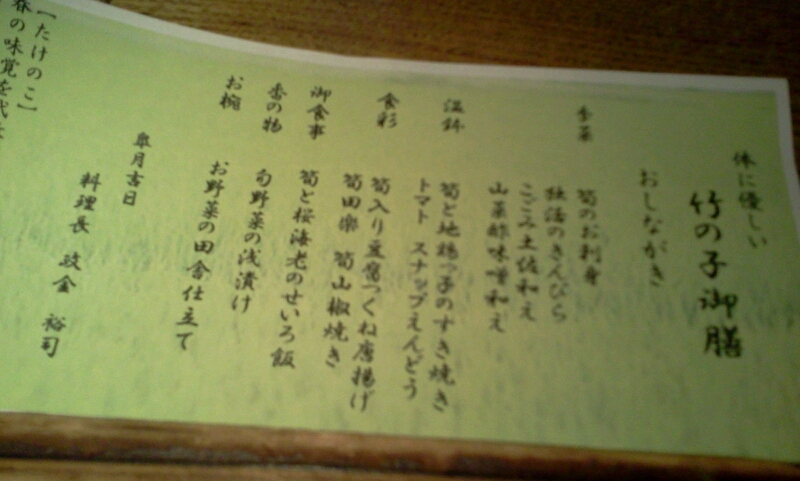 体に優しい
竹の子御膳
おしながき
季菜
筍のお刺身
独活のきんぴら
こごみ土佐和え
山菜酢味噌和え
温鉢
筍と地鶏つ子のすき焼き
トマト スナップえんどう
食彩
筍入り豆腐つくね唐揚げ
筍田楽 筍山椒焼き
御食事
筍と桜海老のせいろ飯
香の物
旬野菜の浅漬け
お椀
お野菜の田舎仕立て
皐月吉日
料理長 政金 裕司
【たけのこ】
春の味覚を代